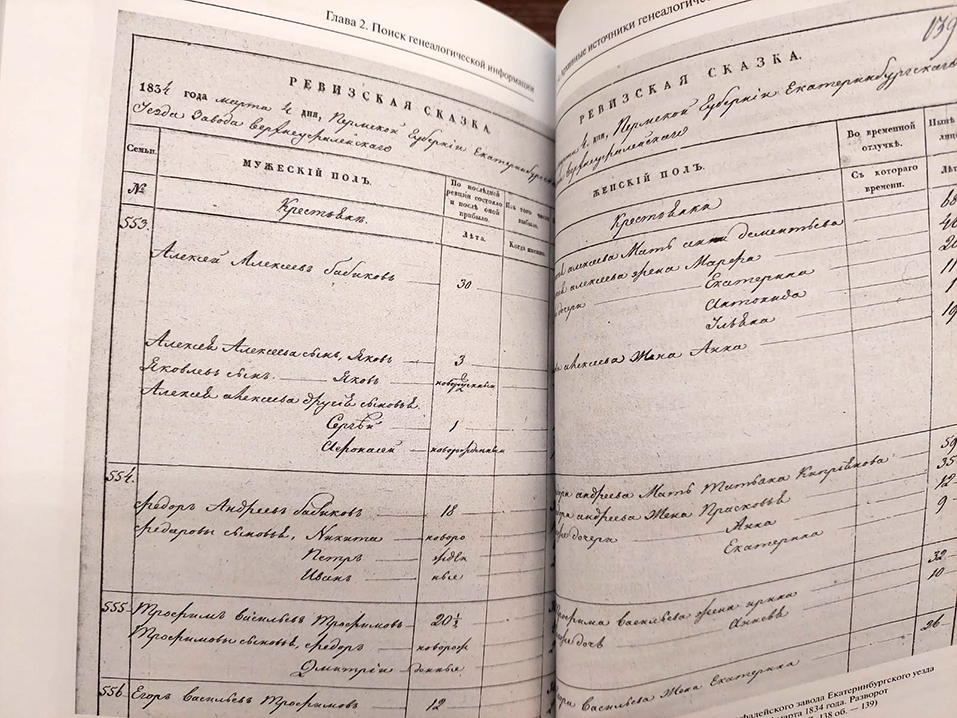 Глава 2. Поиск генеалогической информации
РЕВИЗСКАЯ СКАЗКА.
1834 года марта 4 дня, Пермской Губерніи Екатеринбургскаго
Уезда Завода Верхнеуфалейскаго
Семьи.
№
МУЖЕСКІЙ ПОЛЪ.
По последней ревизіи состояло и после оной прибыло.
Изъ того числа выбыло.
Лѣта.
Когда именно.
Крестьяне.
553.
Алексей Алексеевъ бабиковъ 30
Алексей Алексеева сынъ, Яковъ 3
Яковлевъ сынъ. Яковъ
Алексей алексеева другіе сыновья.
Сергѣй 1
новорожденный
554.
Федоръ Андреевъ бабиковъ 18
Федоровы сыновья, Никита новоро
Петръ жден
Иванъ ные
555. Трофимъ Васильевъ Трофимовъ 20½
Трофимовы сыновья, Федоръ новорож
Дмитрій денные
556. Егоръ Васильевъ 12
Архивные источники генеалогичес
139
РЕВИЗСКАЯ СКАЗКА.
марта 4 дня, Пермской Губерніи Екатеринбургскаго
Верхнеуфалейскаго
ЖЕНСКІЙ ПОЛЪ.
Во временной отлучкѣ.
Съ котораго времени.
Нынѣ
лице
Лѣт
Крестьянки
алексеева Мать дементьева 68
алексеева жена Марфа
дочери Екатерина
Антонида 11
1
алексеева Жена Анна 19
андреева Мать 59
андреева Жена Прасковья 35
дочери Анна 12
Екатерина 9
Трофима Васильева жена 32
дочь 10
Васильева Жена Екатерина 26
фалейского завода Екатеринбургского уезда
марта 1834 года. Разворот
38 об. — 139)